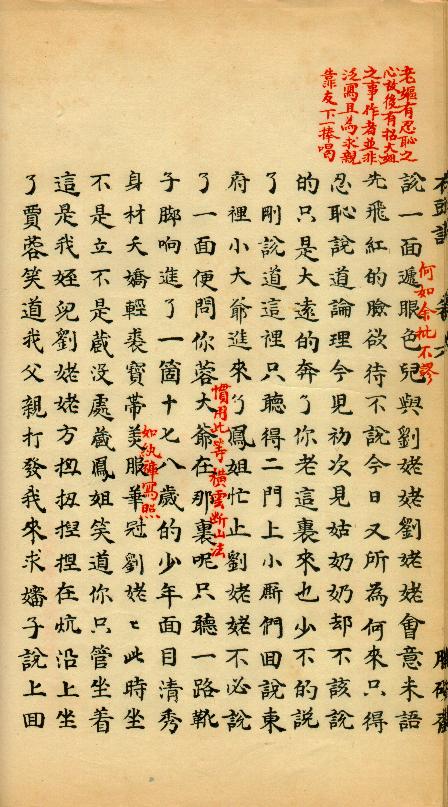 老嫗有忍恥之
心故後有招大姐
之事作者並非
泛寫且為求親
靠友下一棒喝
說一面遞眼色兒與劉姥姥劉姥姥會意未語
何如余批不謬
先飛紅的臉欲待不說今日又所為何來只得
忍恥說道論理今児初次見姑奶奶却不該說
的只是大遠的奔了你老這裏來也少不的説
了剛說道這裡只聽得二門上小厮們回說東
府裡小大爺進來了鳳姐忙止劉姥姥不必說
慣用此等橫雲斷山法
了一面便問你蓉大爺在那裏呢只聽一路靴
子脚响進了一箇十七八歲的少年面目清秀
身材夭嬌輕裘寶帶美服華冠劉姥〻此時坐
如紈褲寫照
不是立不是蔵没處蔵鳳姐笑道你只管坐着
這是我姪兒劉姥姥方扭扭揑揑在炕沿上坐
了賈蓉笑道我父親打發我来求嬸子說上回